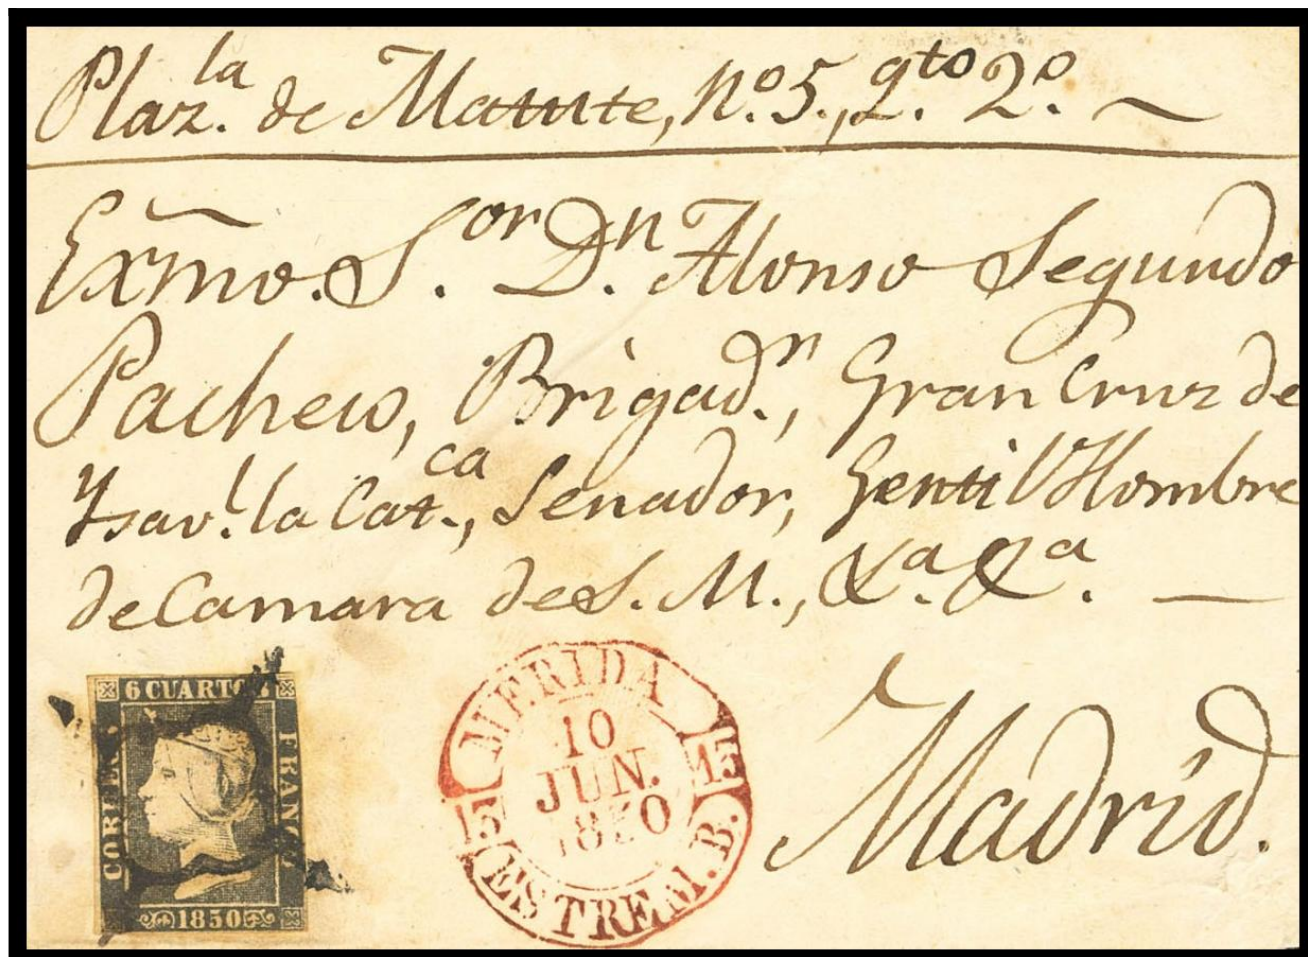 Plaz.la de Matute, n.o 5., 2.to 2.o
Exmo. S.or D.n Alonso Segundo
Pacheco, Brigad.r, Gran Cruz de
Ysav.l la Cat.ca, Senador, Gentil Hombre
de Camara de S. M., &.a &.a
Madrid.
6 CUARTOS
CORREOS
FRANCO
1850
MERIDA
10
JUN.
1850
15
15
ESTREM.B.